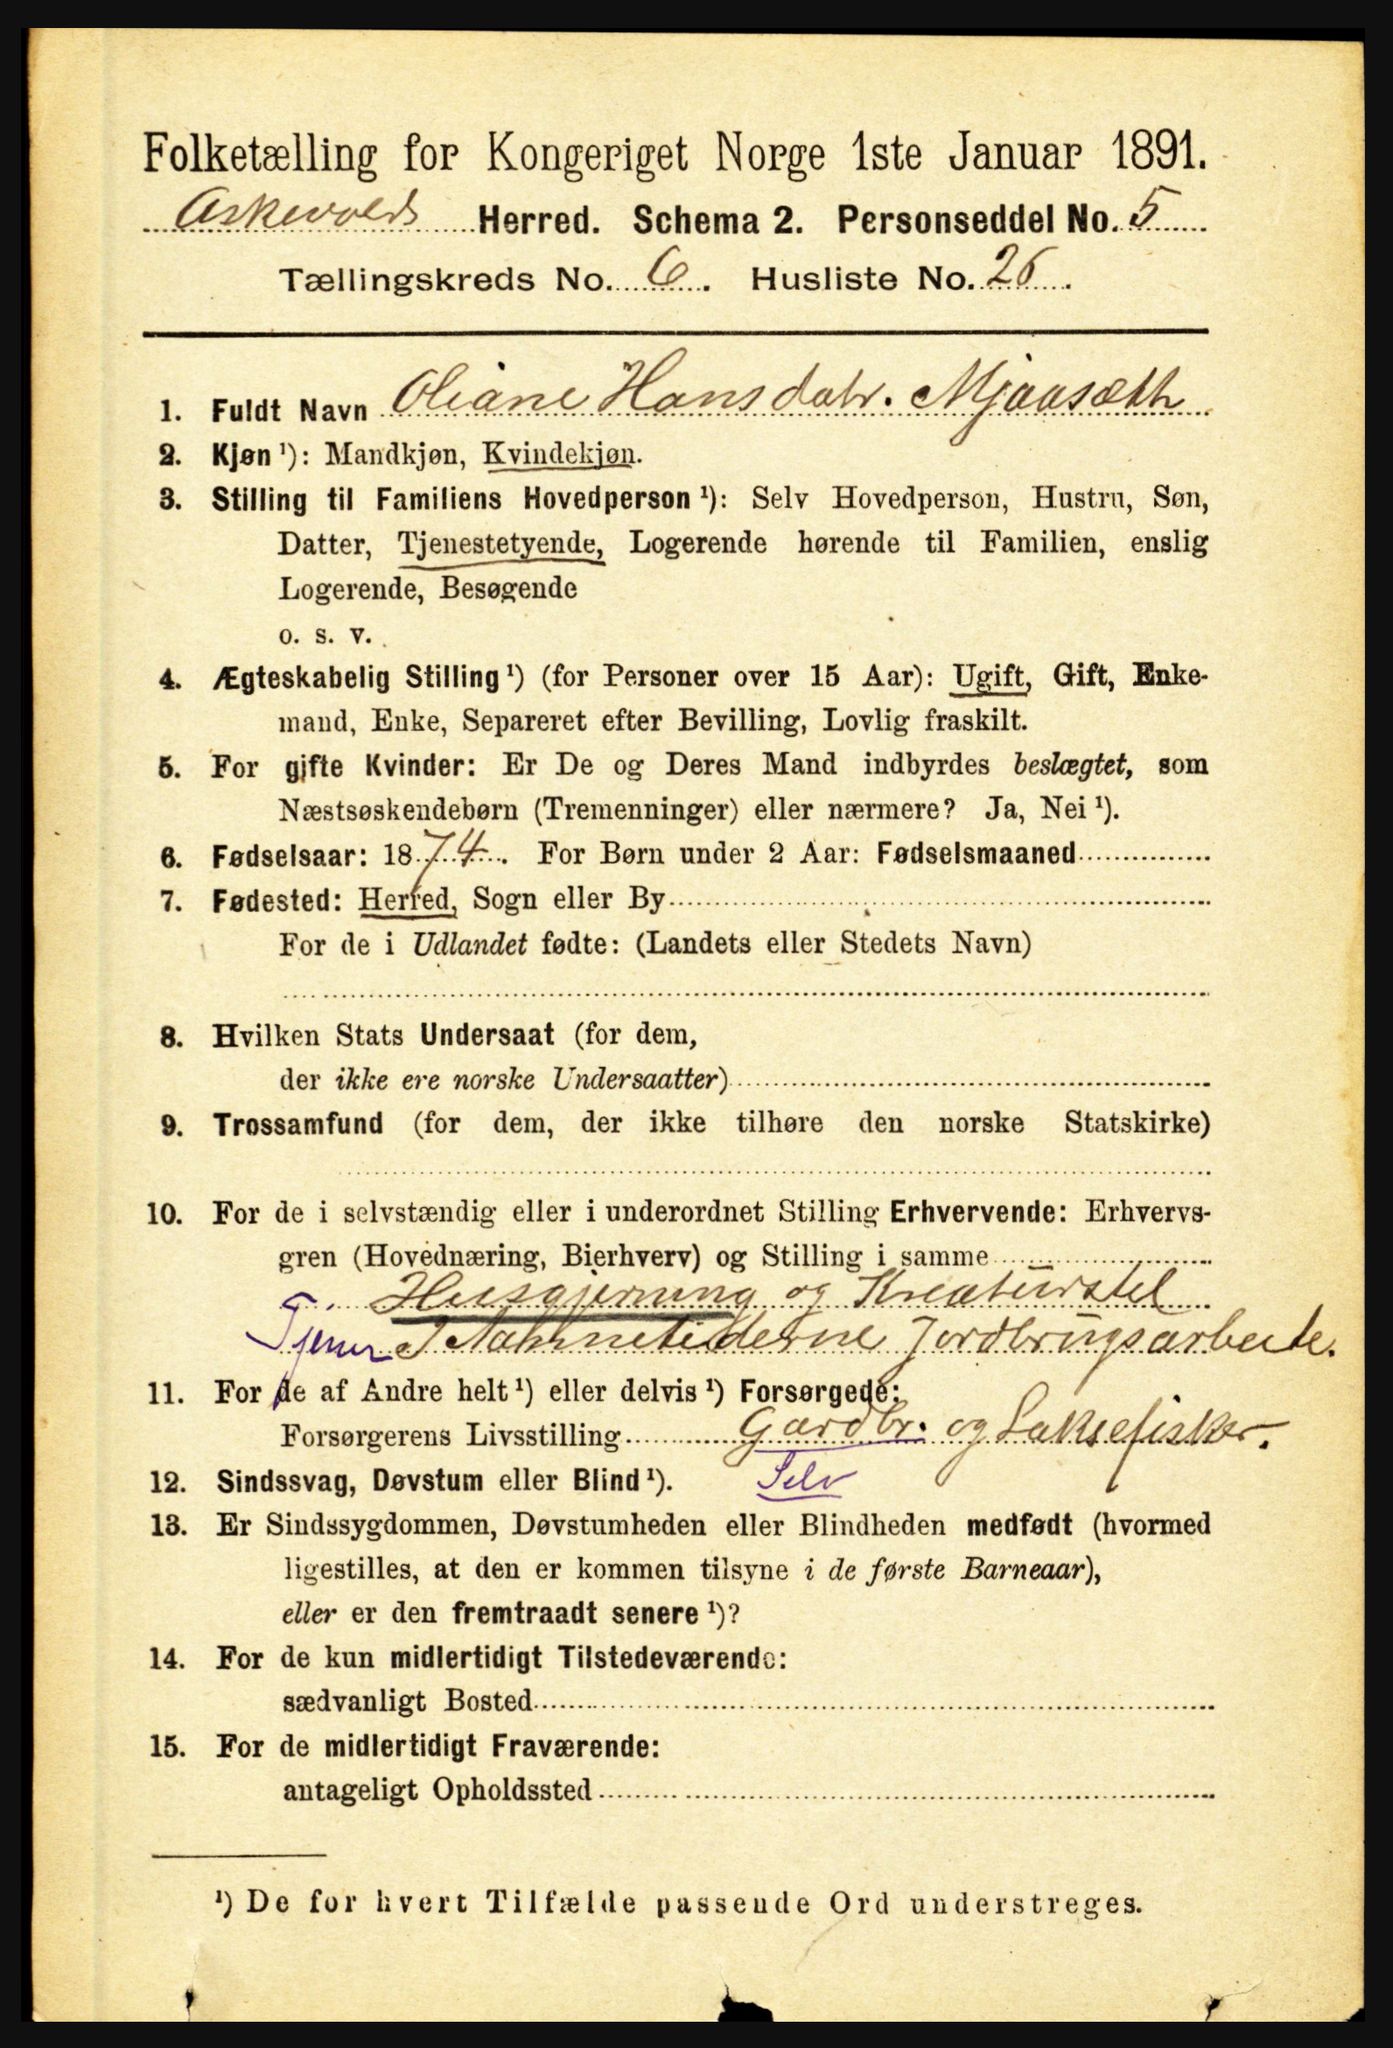 Folketælling for Kongeriget Norge 1ste Januar 1891.
Askevolds Herred. Schema 2. Personseddel No. 5
Tællingskreds No. 6. Husliste No. 26.
1. Fuldt Navn Oliane Hansdatr. Mjaasæth
2. Kjøn ¹): Mandkjøn, Kvindekjøn.
3. Stilling til Familiens Hovedperson ¹): Selv Hovedperson, Hustru, Søn,
Datter, Tjenestetyende, Logerende hørende til Familien, enslig
Logerende, Besøgende
o. s. v.
4. Ægteskabelig Stilling ¹) (for Personer over 15 Aar): Ugift, Gift, Enke-
mand, Enke, Separeret efter Bevilling, Lovlig fraskilt.
5. For gifte Kvinder: Er De og Deres Mand indbyrdes beslægtet, som
Næstsøskendebørn (Tremenninger) eller nærmere? Ja, Nei ¹).
6. Fødselsaar: 1874. For Børn under 2 Aar: Fødselsmaaned
7. Fødested: Herred, Sogn eller By
For de i Udlandet fødte: (Landets eller Stedets Navn)
8. Hvilken Stats Undersaat (for dem,
der ikke ere norske Undersaatter)
9. Trossamfund (for dem, der ikke tilhøre den norske Statskirke)
10. For de i selvstændig eller i underordnet Stilling Erhvervende: Erhvervs-
gren (Hovednæring, Bierhverv) og Stilling i samme
Husgjerning og Kreaturstel
Tjener I Aannetiderne Jordbrugsarbeide.
11. For de af Andre helt ¹) eller delvis ¹) Forsørgede:
Forsørgerens Livsstilling Gardbr. og Laksefisker.
12. Sindssvag, Døvstum eller Blind ¹). Selv
13. Er Sindssygdommen, Døvstumheden eller Blindheden medfødt (hvormed
ligestilles, at den er kommen tilsyne i de første Barneaar),
eller er den fremtraadt senere ¹)?
14. For de kun midlertidigt Tilstedeværende:
sædvanligt Bosted
15. For de midlertidigt Fraværende:
antageligt Opholdssted
¹) De for hvert Tilfælde passende Ord understreges.